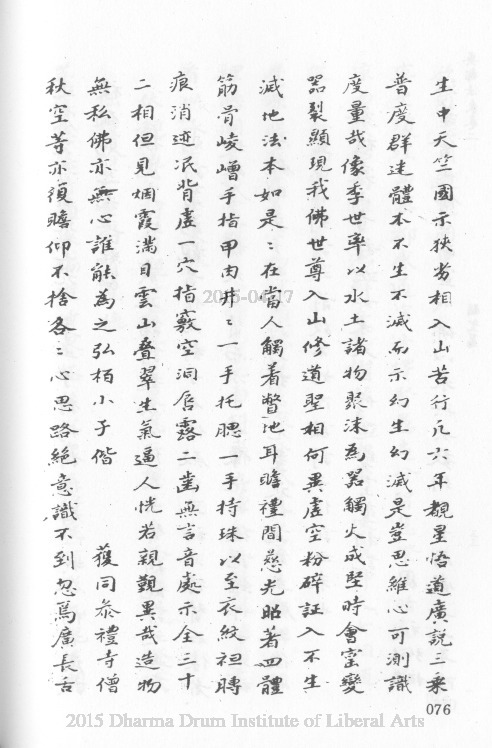 生中天竺國示狹劣相入山苦行凡六年覩星悟道廣説三乘
普度群迷體本不生不滅而示幻生幻滅是豈思維心可測識
度量哉像季世率以水土諸物聚沫為器觸火成堅時會窑變
器裂顯現我佛世尊入山修道聖相何異虛空粉碎証入不生
滅地法本如是〻在當人觸着瞥地耳瞻禮間慈光昭著四體
筋骨崚嶒手指甲肉井〻一手托腮一手持珠以至衣紋袒膊
痕消迹泯背虛一穴指竅空洞唇露二齒無言音處示全三十
二相但見烟霞滿目雲山叠翠生氣逼人恍若親覿異哉造物
無私佛亦無心誰能為之弘栢小子偕 獲同叅禮寺僧
秋空等亦須瞻仰不捨各〻心思路絶意識不到忽焉廣長舌
076
2015-04-17
2015 Dharma Drum Institute of Liberal Arts